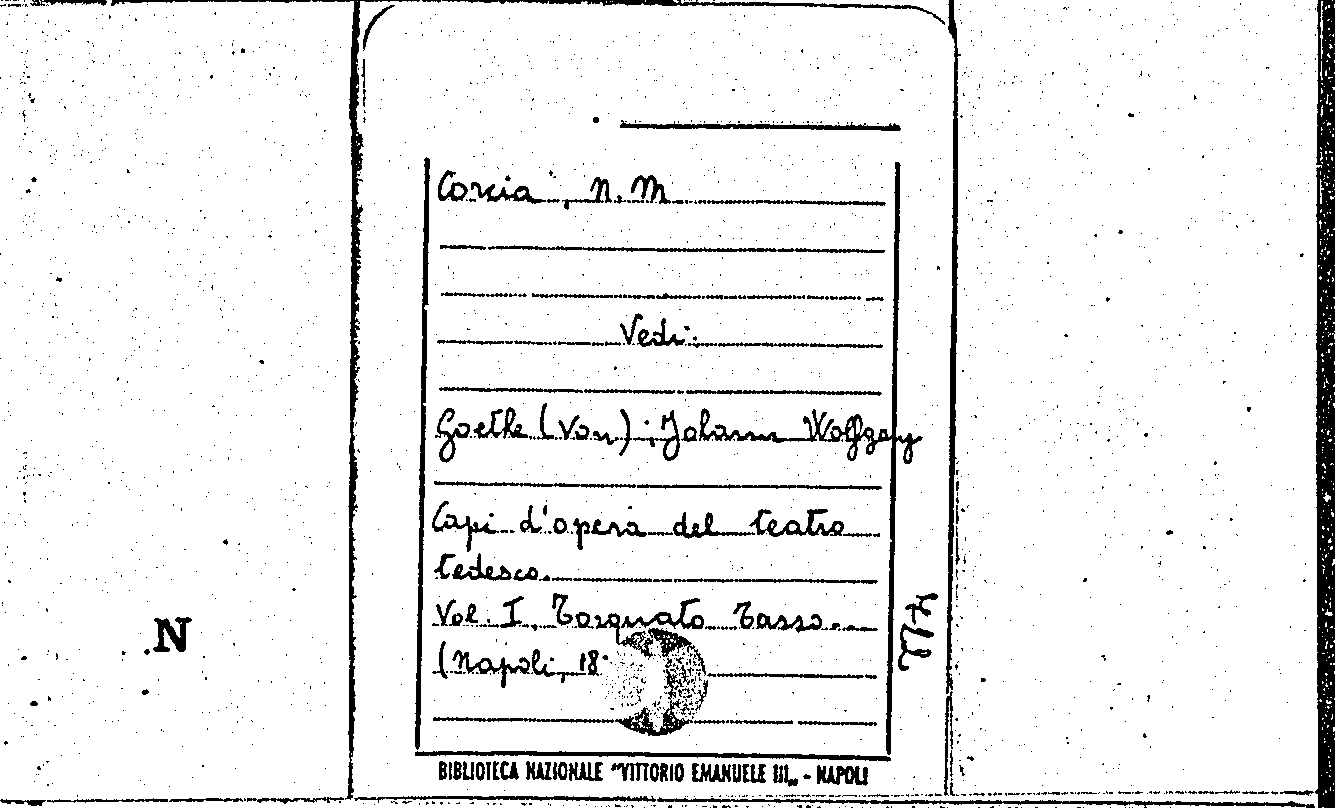 Corcia, N. M.
Vedi:
Goethe (von), Johann Wolfgang
Capi d'opera del teatro
tedesco.
Vol. I. Torquato Tasso...
(Napoli, 18
N
BIBLIOTECA NAZIONALE "VITTORIO EMANUELE III„ - NAPOLI